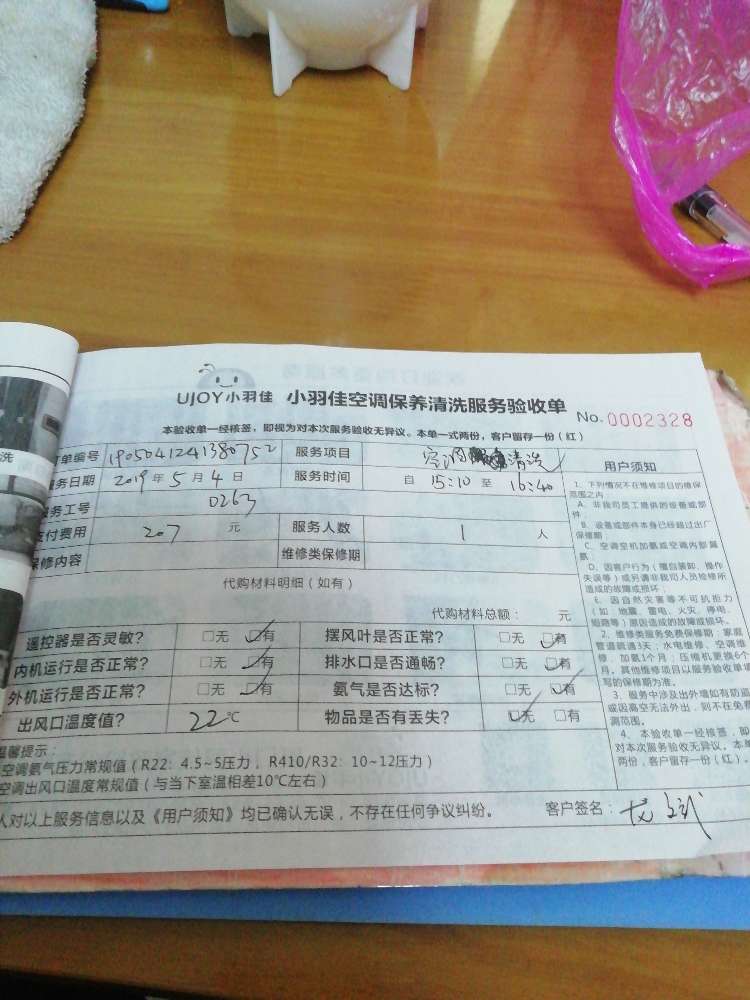 UJOY小羽佳 小羽佳空调保养清洗服务验收单 No.0002328
本验收单一经核签，即视为对本次服务验收无异议。本单一式两份，客户留存一份（红）
订单编号 1905041241380752 服务项目 空调清洗
服务日期 2019年5月4日 服务时间 自15:10至16:40
服务工号 0263
支付费用 207元 服务人数 1人
保修内容 维修类保修期
代购材料明细（如有）
代购材料总额： 元
遥控器是否灵敏？ □无 □有 摆风叶是否正常？ □无 □有
内机运行是否正常？ □无 □有 排水口是否通畅？ □无 □有
外机运行是否正常？ □无 □有 氨气是否达标？ □无 □有
出风口温度值？ 22℃ 物品是否有丢失？ □无 □有
温馨提示：
空调氨气压力常规值（R22：4.5~5压力，R410/R32：10~12压力）
空调出风口温度常规值（与当下室温相差10℃左右）
人对以上服务信息以及《用户须知》均已确认无误，不存在任何争议纠纷。 客户签名：
用户须知
1、下列情况不在维修项目的维保
范围之内
A、非我司员工提供的设备或部
件
B、设备或部件本身已经超过出厂
保修期
C、空调空机加氨或空调内部漏
氨
D、因客户行为（擅自装卸、操作
失误等）或另请非我司人员检修所
造成的故障或损坏
E、因自然灾害等不可抗拒力
（如：地震、雷电、火灾、停电、
短路等）原因造成的故障或损坏。
2、维修类服务免费保修期：家庭
管道疏通3天；水电维修、空调维
修、加氨1个月；压缩机更换6个
月。其他维修项目以服务验收单填
写的保修期为准。
3、服务中涉及出外墙如有防盗
或因高空无法外出，则不在免费
调范围。
4、本验收单一经核签，即
对本次服务验收无异议。本单
两份，客户留存一份（红）。
洗